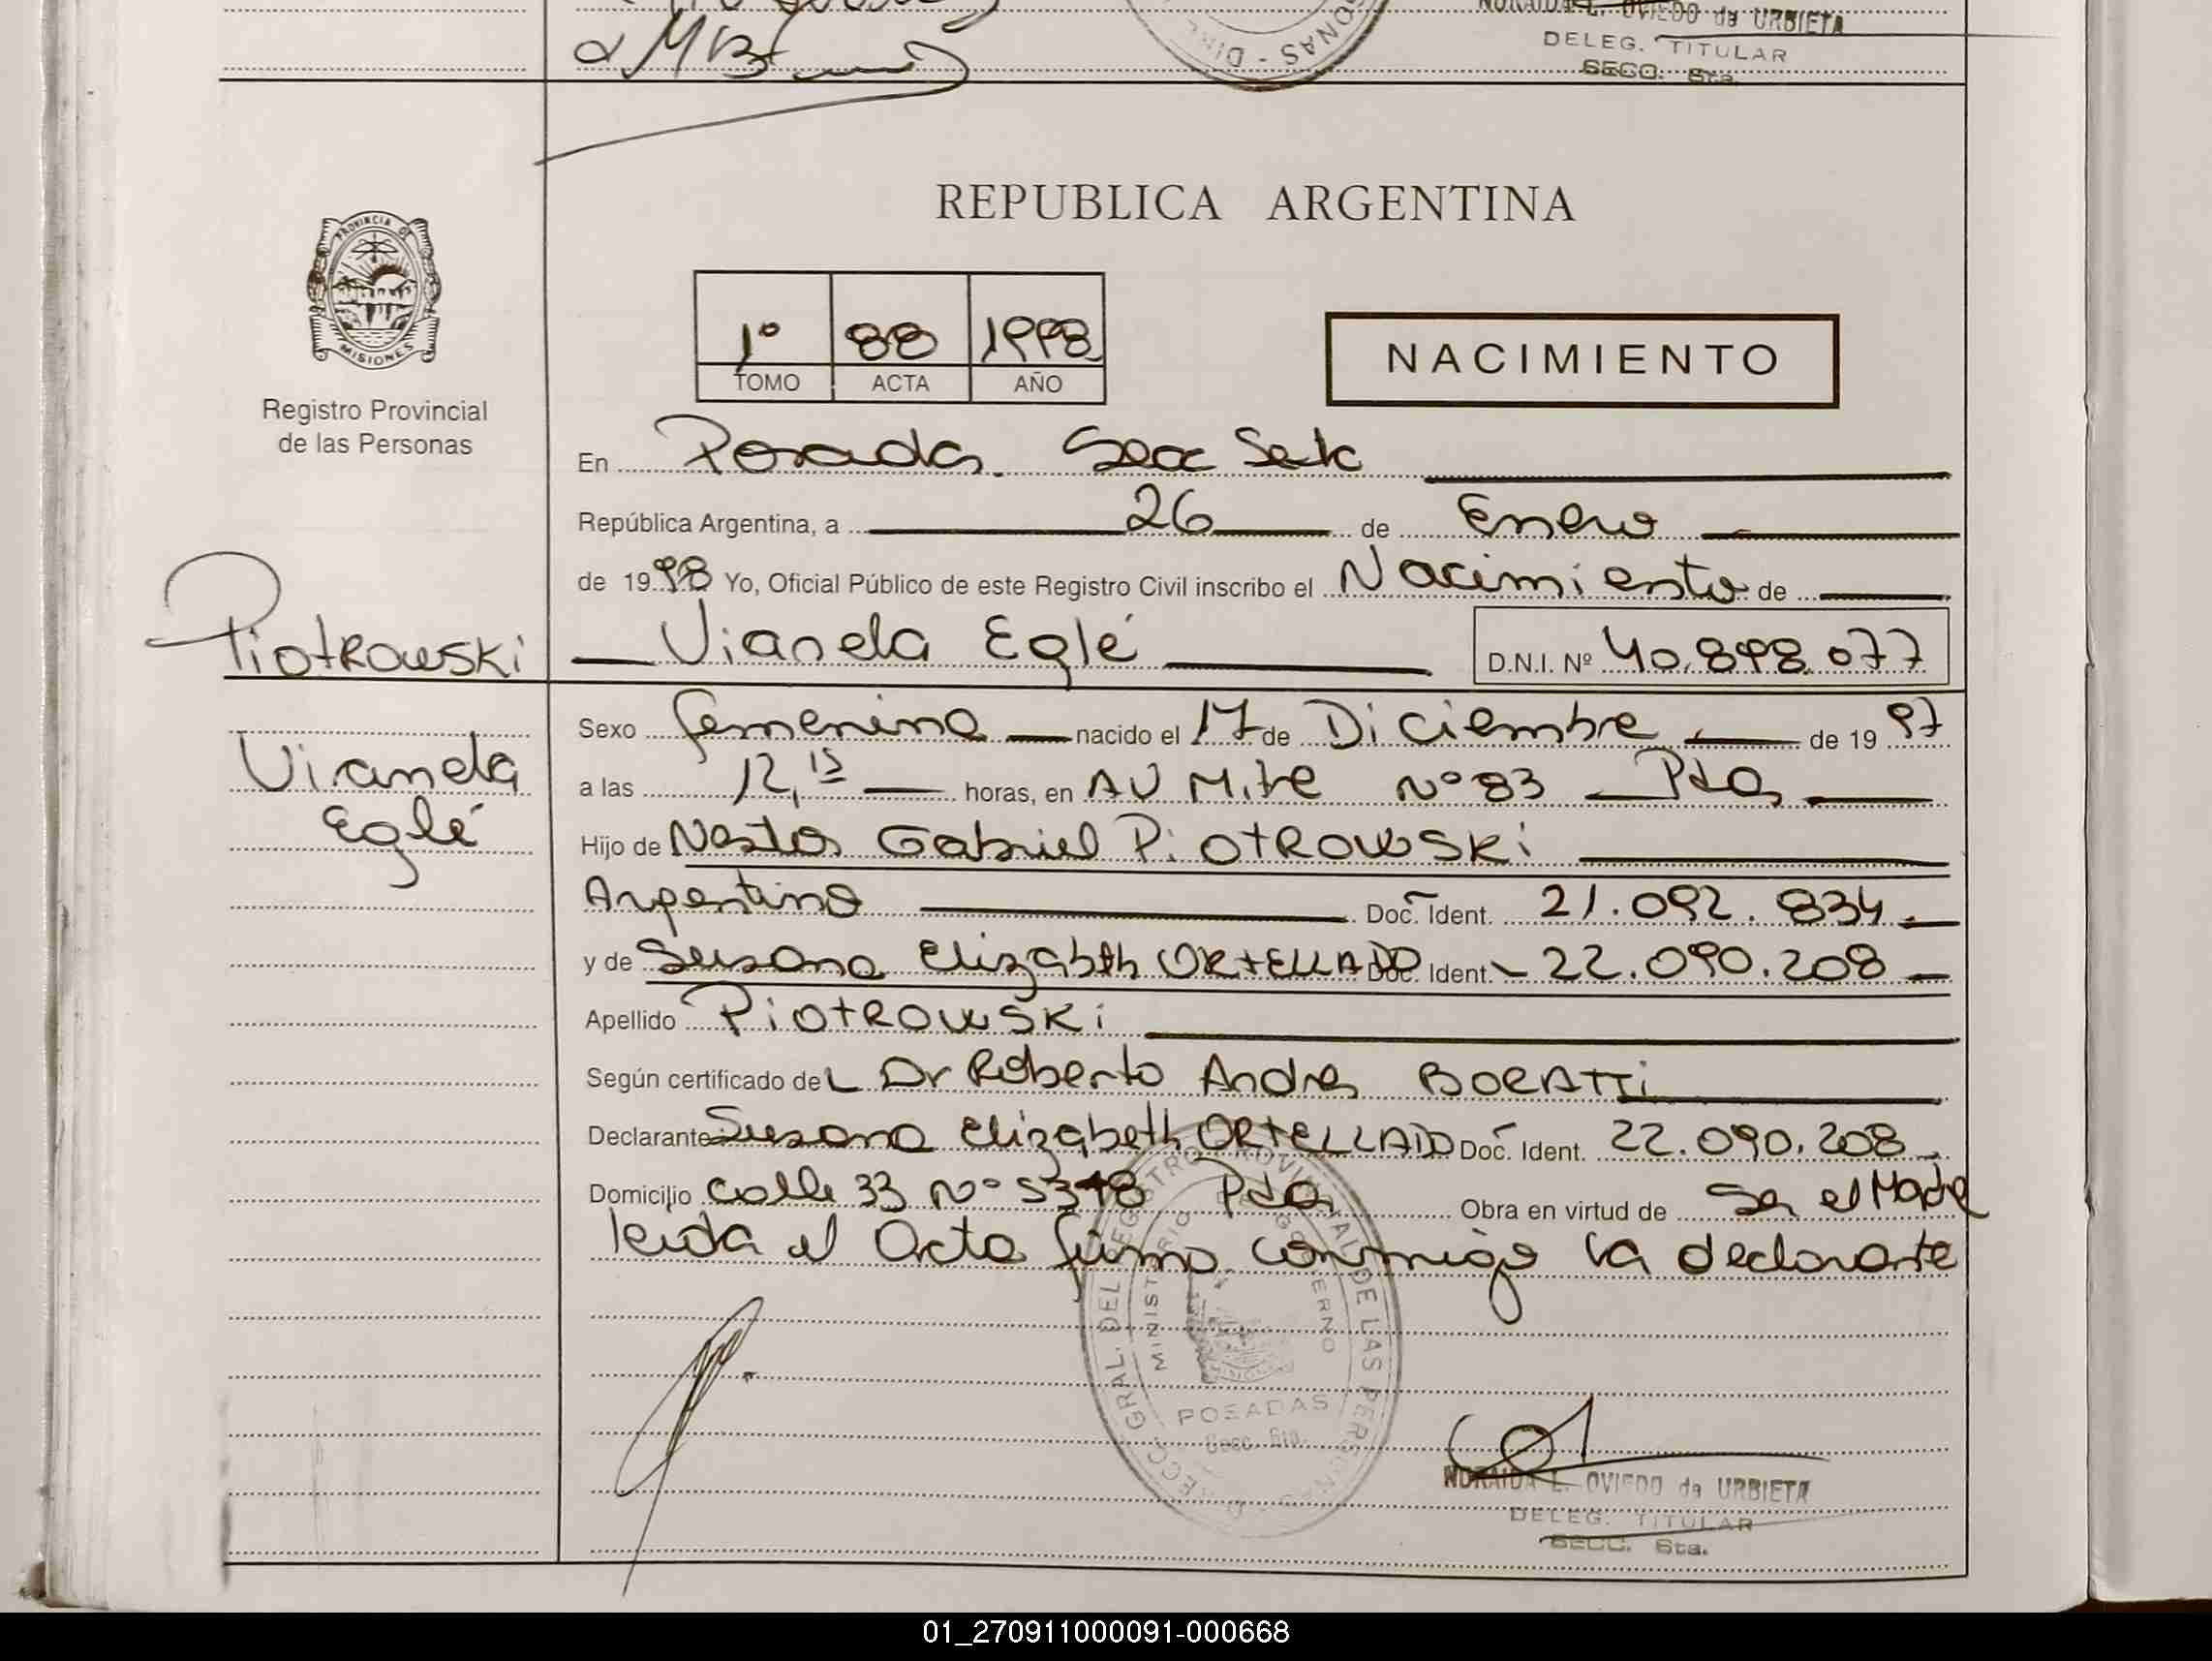 NORAIDA L. OVIEDO de URBIETA
DELEG. TITULAR
SECC. 6ta.
PROVINCIA DE
MISIONES
Registro Provincial
de las Personas
REPUBLICA ARGENTINA
1º 88 1998
TOMO ACTA AÑO
NACIMIENTO
En Posadas Secc Sexta
República Argentina, a 26 de Enero
de 1998 Yo, Oficial Público de este Registro Civil inscribo el Nacimiento de
Piotrowski
Vianela Eglé D.N.I. Nº 40.898.077
Vianela
Eglé
Sexo femenino nacido el 17 de Diciembre de 1997
a las 12,15 horas, en AV Mitre Nº 83 Pdas
Hijo de Nestor Gabriel PiotROWSKi
Argentino Doc. Ident. 21.092.834
y de Susana Elizabeth ORtELLADO Doc. Ident. 22.090.208
Apellido PiotROWSKi
Según certificado del Dr Roberto Andres BORATTi
Declarante Susana Elizabeth ORtELLADO Doc. Ident. 22.090.208
Domicilio Calle 33 Nº 5398 Pdas Obra en virtud de Ser el Madre
leida el Acta firma conmigo la declarante
DIRECC. GRAL. DEL REGISTRO PROVINCIAL DE LAS PERSONAS
MINISTERIO DE GOBIERNO
POSADAS
Secc. 6ta.
NORAIDA L. OVIEDO de URBIETA
DELEG. TITULAR
SECC. 6ta.
01_270911000091-000668